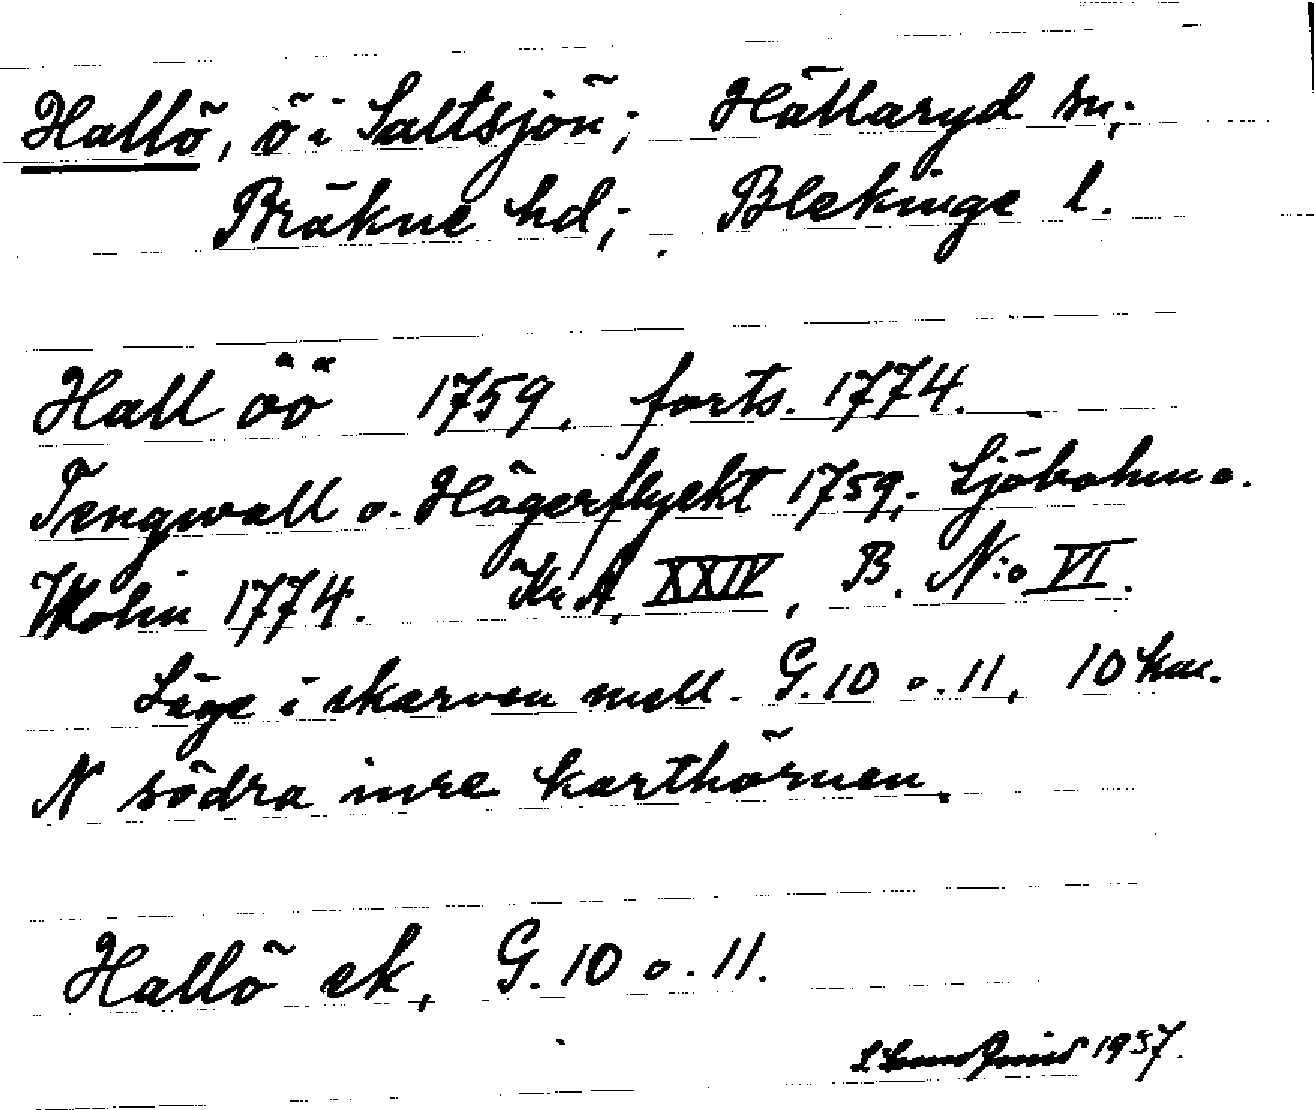 Hallö, ö i Saltsjön; Hällaryd sn;
Bräkne hd; Blekinge l.
Hall öö 1759, forts. 1774.
Tengwall o. Hägerflyckt 1759; Sjöbohm o.
Wohin 1774. Kr. A. XXIV, B. N:o VI.
Läge i skarven mell. G. 10 o. 11, 10 km.
N södra inre karthörnen.
Hallö ek, G. 10 o. 11.
1957.